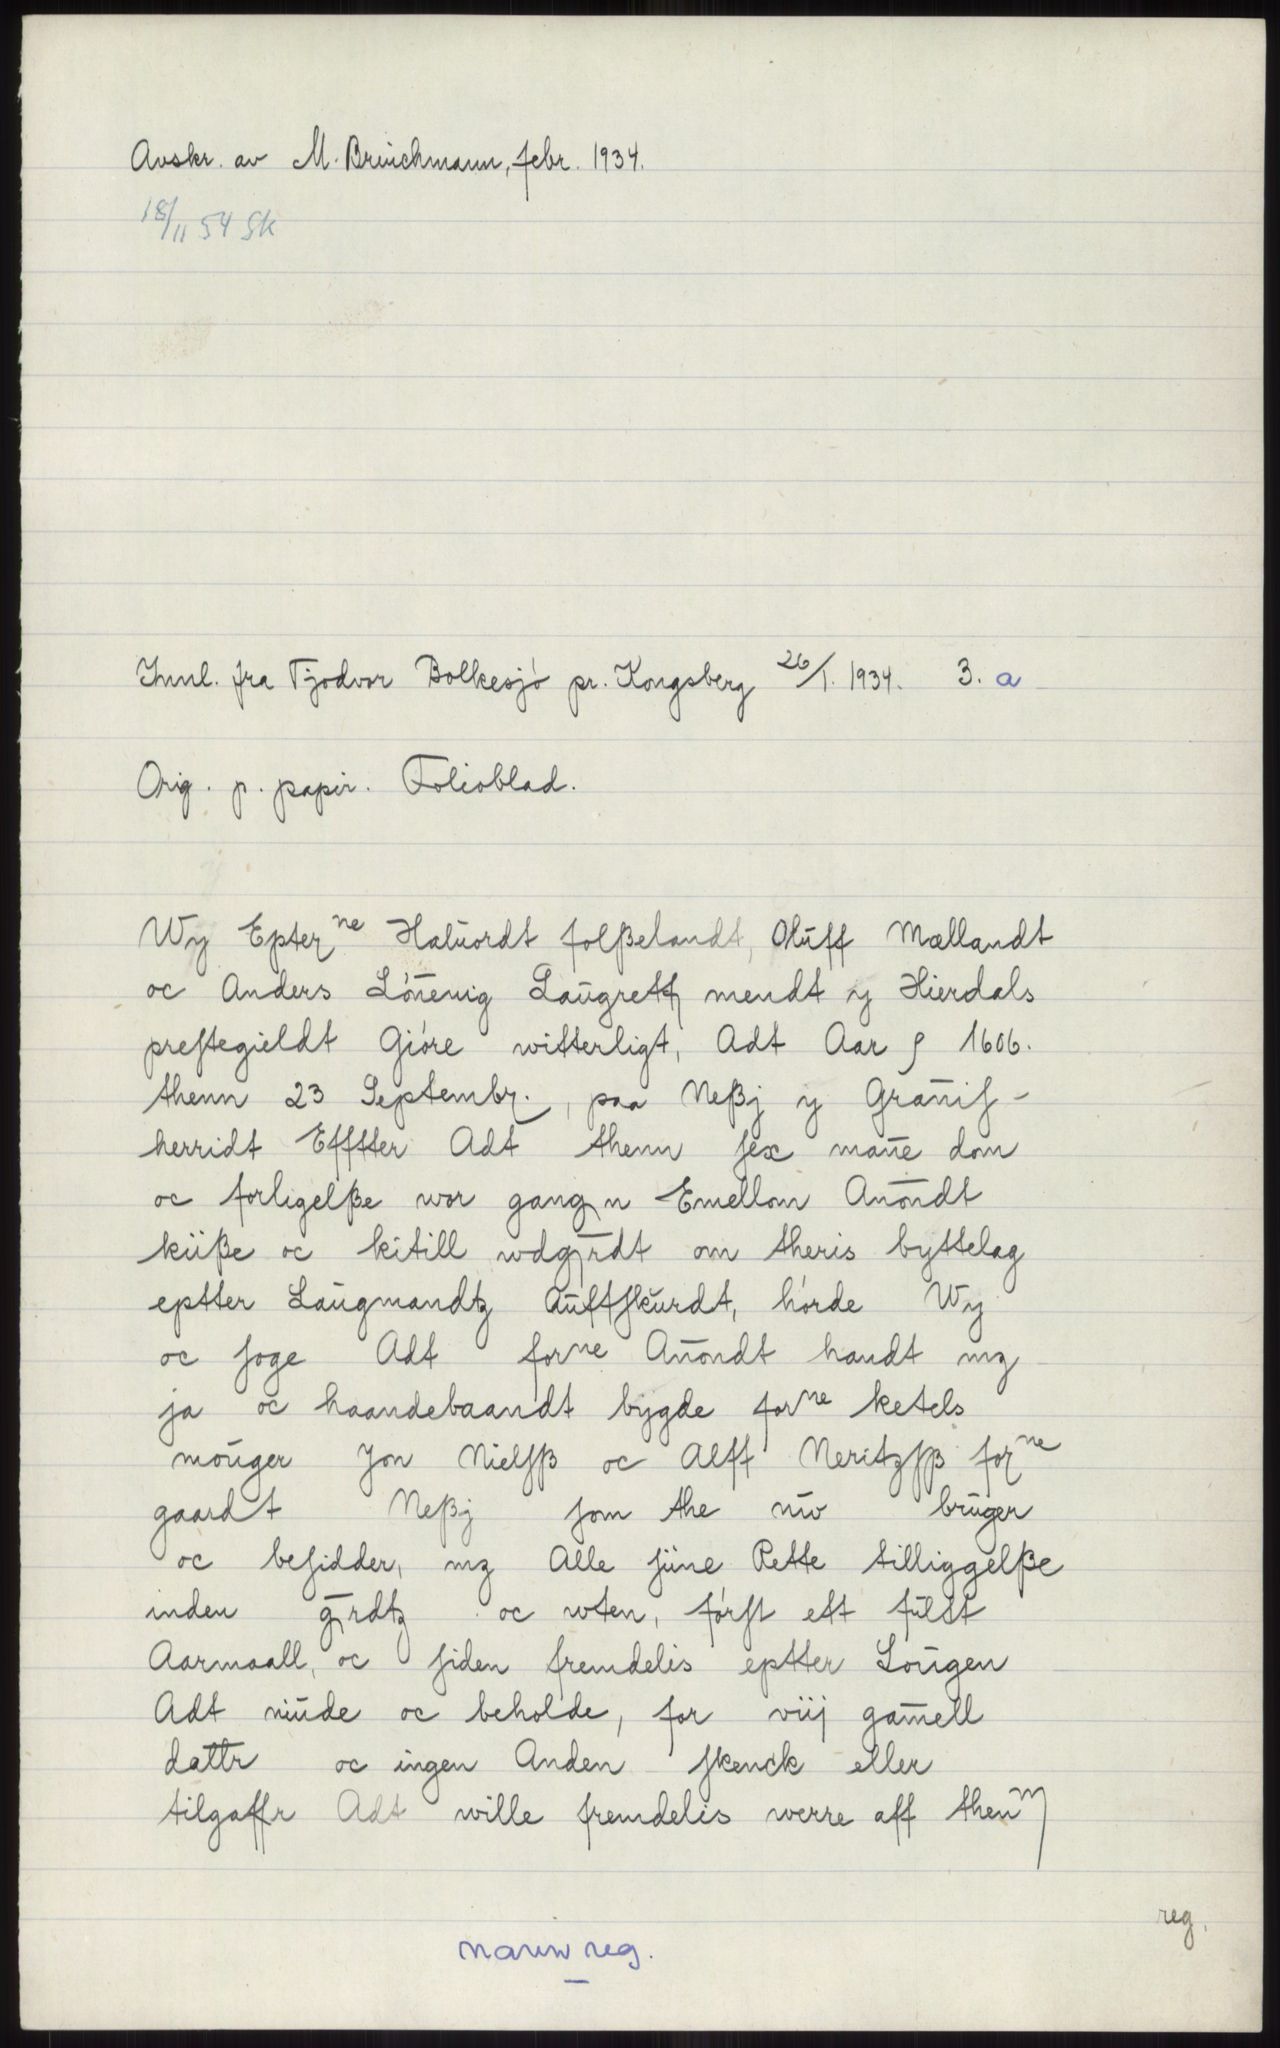 Avskr. av M. Brinchmann, febr. 1934.
18/11 54 SK
Innl. fra Tjodvor Bolkesjó pr. Kongsberg 26/1. 1934. 3. a
Orig. p. papir. Folioblad.
Wy Epterne Haluordt folßelandt, Oluff Mællandt
oc Anders Lónenig Laugrett mendt y Hierdals
prestegieldt Gióre witterligt, Adt Aar 1606.
thenn 23 Septembr., paa Neßj y Granis-
herridt Efftter Adt thenn sex mane dom
oc forligelße wor gangn Emellom Anóndt
kuße oc kitill wdgrdt om theris byttelag
eptter Laugmandtz Auftskurdt, hórde Wy
oc soge Adt forne Auondt handt mz
ja oc haandebaandt bygde forne ketels
mouger Jon Nielsß oc Alff Neritzsß forne
gaardt Neßj som the nw bruger
oc besidder, mz Alle sine Rette tilliggelße
inden grdtz oc wten, fórst ett fult
Aarmaall, oc siden fremdelis eptter Lougen
Adt niude oc beholde, for viij gamell
dattr oc ingen Anden skenck eller
tilgaffr Adt wille fremdelis werre aff thenm
reg.
navnreg.